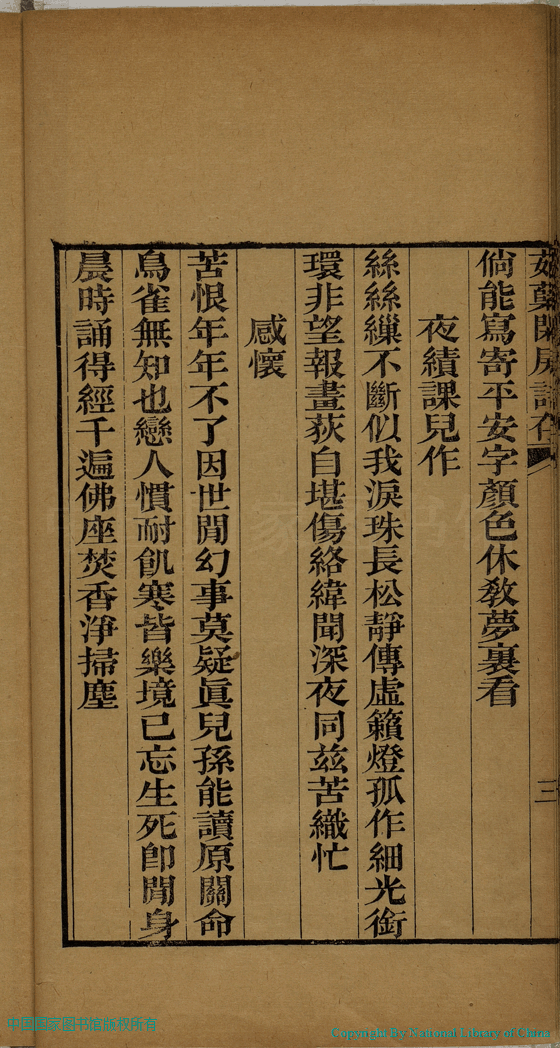 倘能寫寄平安字顏色休教夢裏看
夜績課兒作
絲絲繅不斷似我淚珠長松靜傳虛籟燈孤作細光銜
環非望報畫荻自堪傷絡緯聞深夜同兹苦織忙
感懷
苦恨年年不了因世閒幻事莫疑眞兒孫能讀原關命
鳥雀無知也戀人慣耐飢寒皆樂境已忘生死卽閒身
晨時誦得經千遍佛座焚香淨掃塵
三
中国国家图书馆版权所有
Copyright By National Library of China